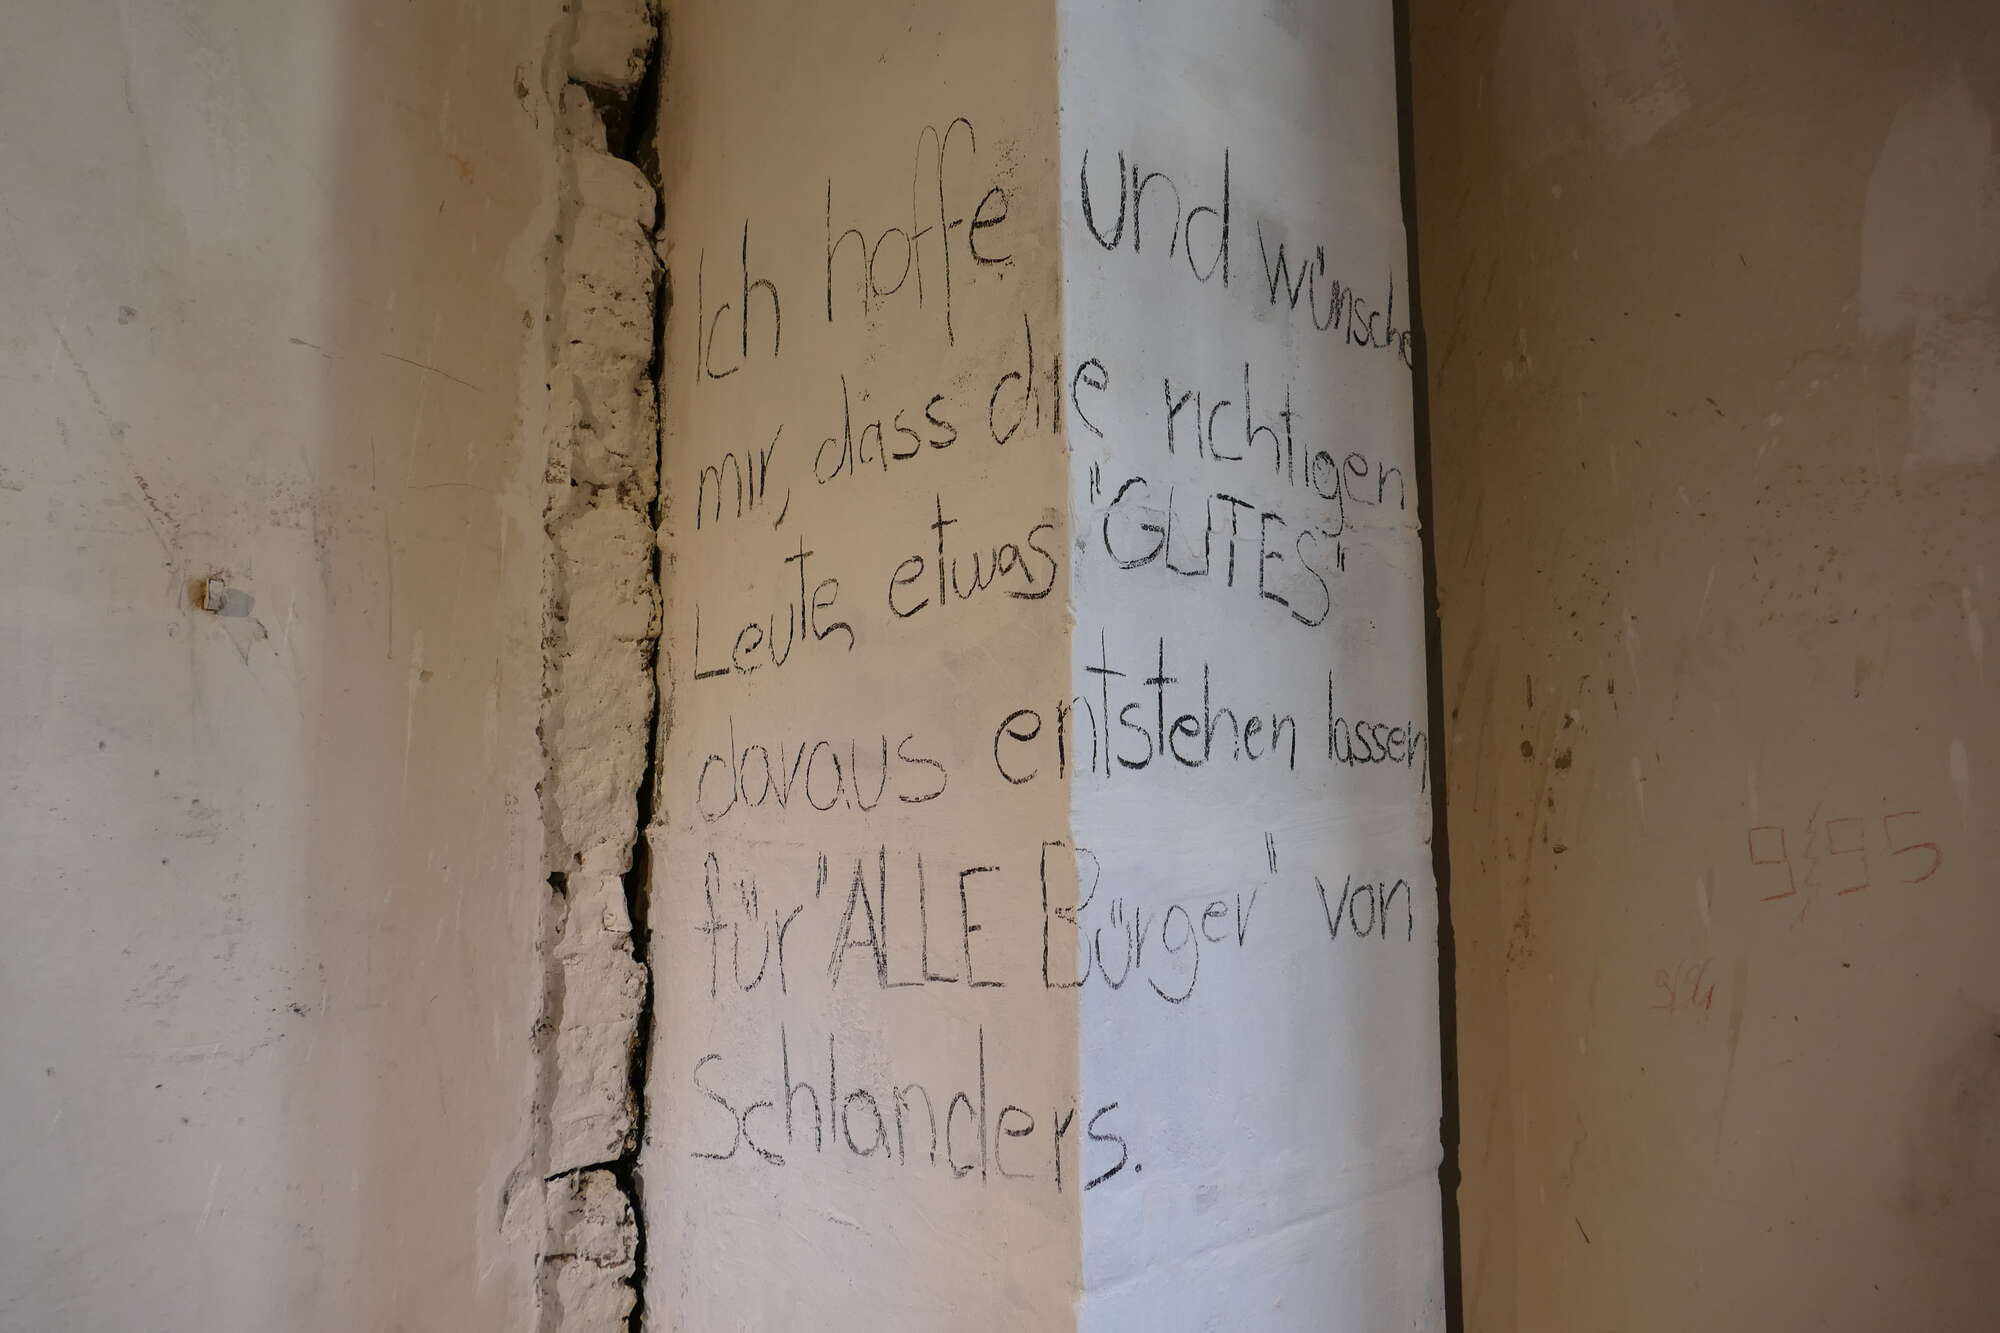 Ich hoffe und wünsche
mir, dass die richtigen
Leute etwas "GUTES"
daraus entstehen lassen
für "ALLE Bürger" von
Schlanders.
9595